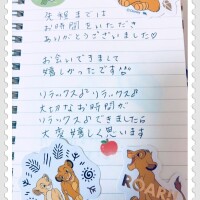 先程までは
お時間をいただき
ありがとうございました♡
お会いできまして
嬉しかったです
リラックス♪リラックス♪
大切なお時間が
リラックスできましたら
大変嬉しく思います
ROAR!